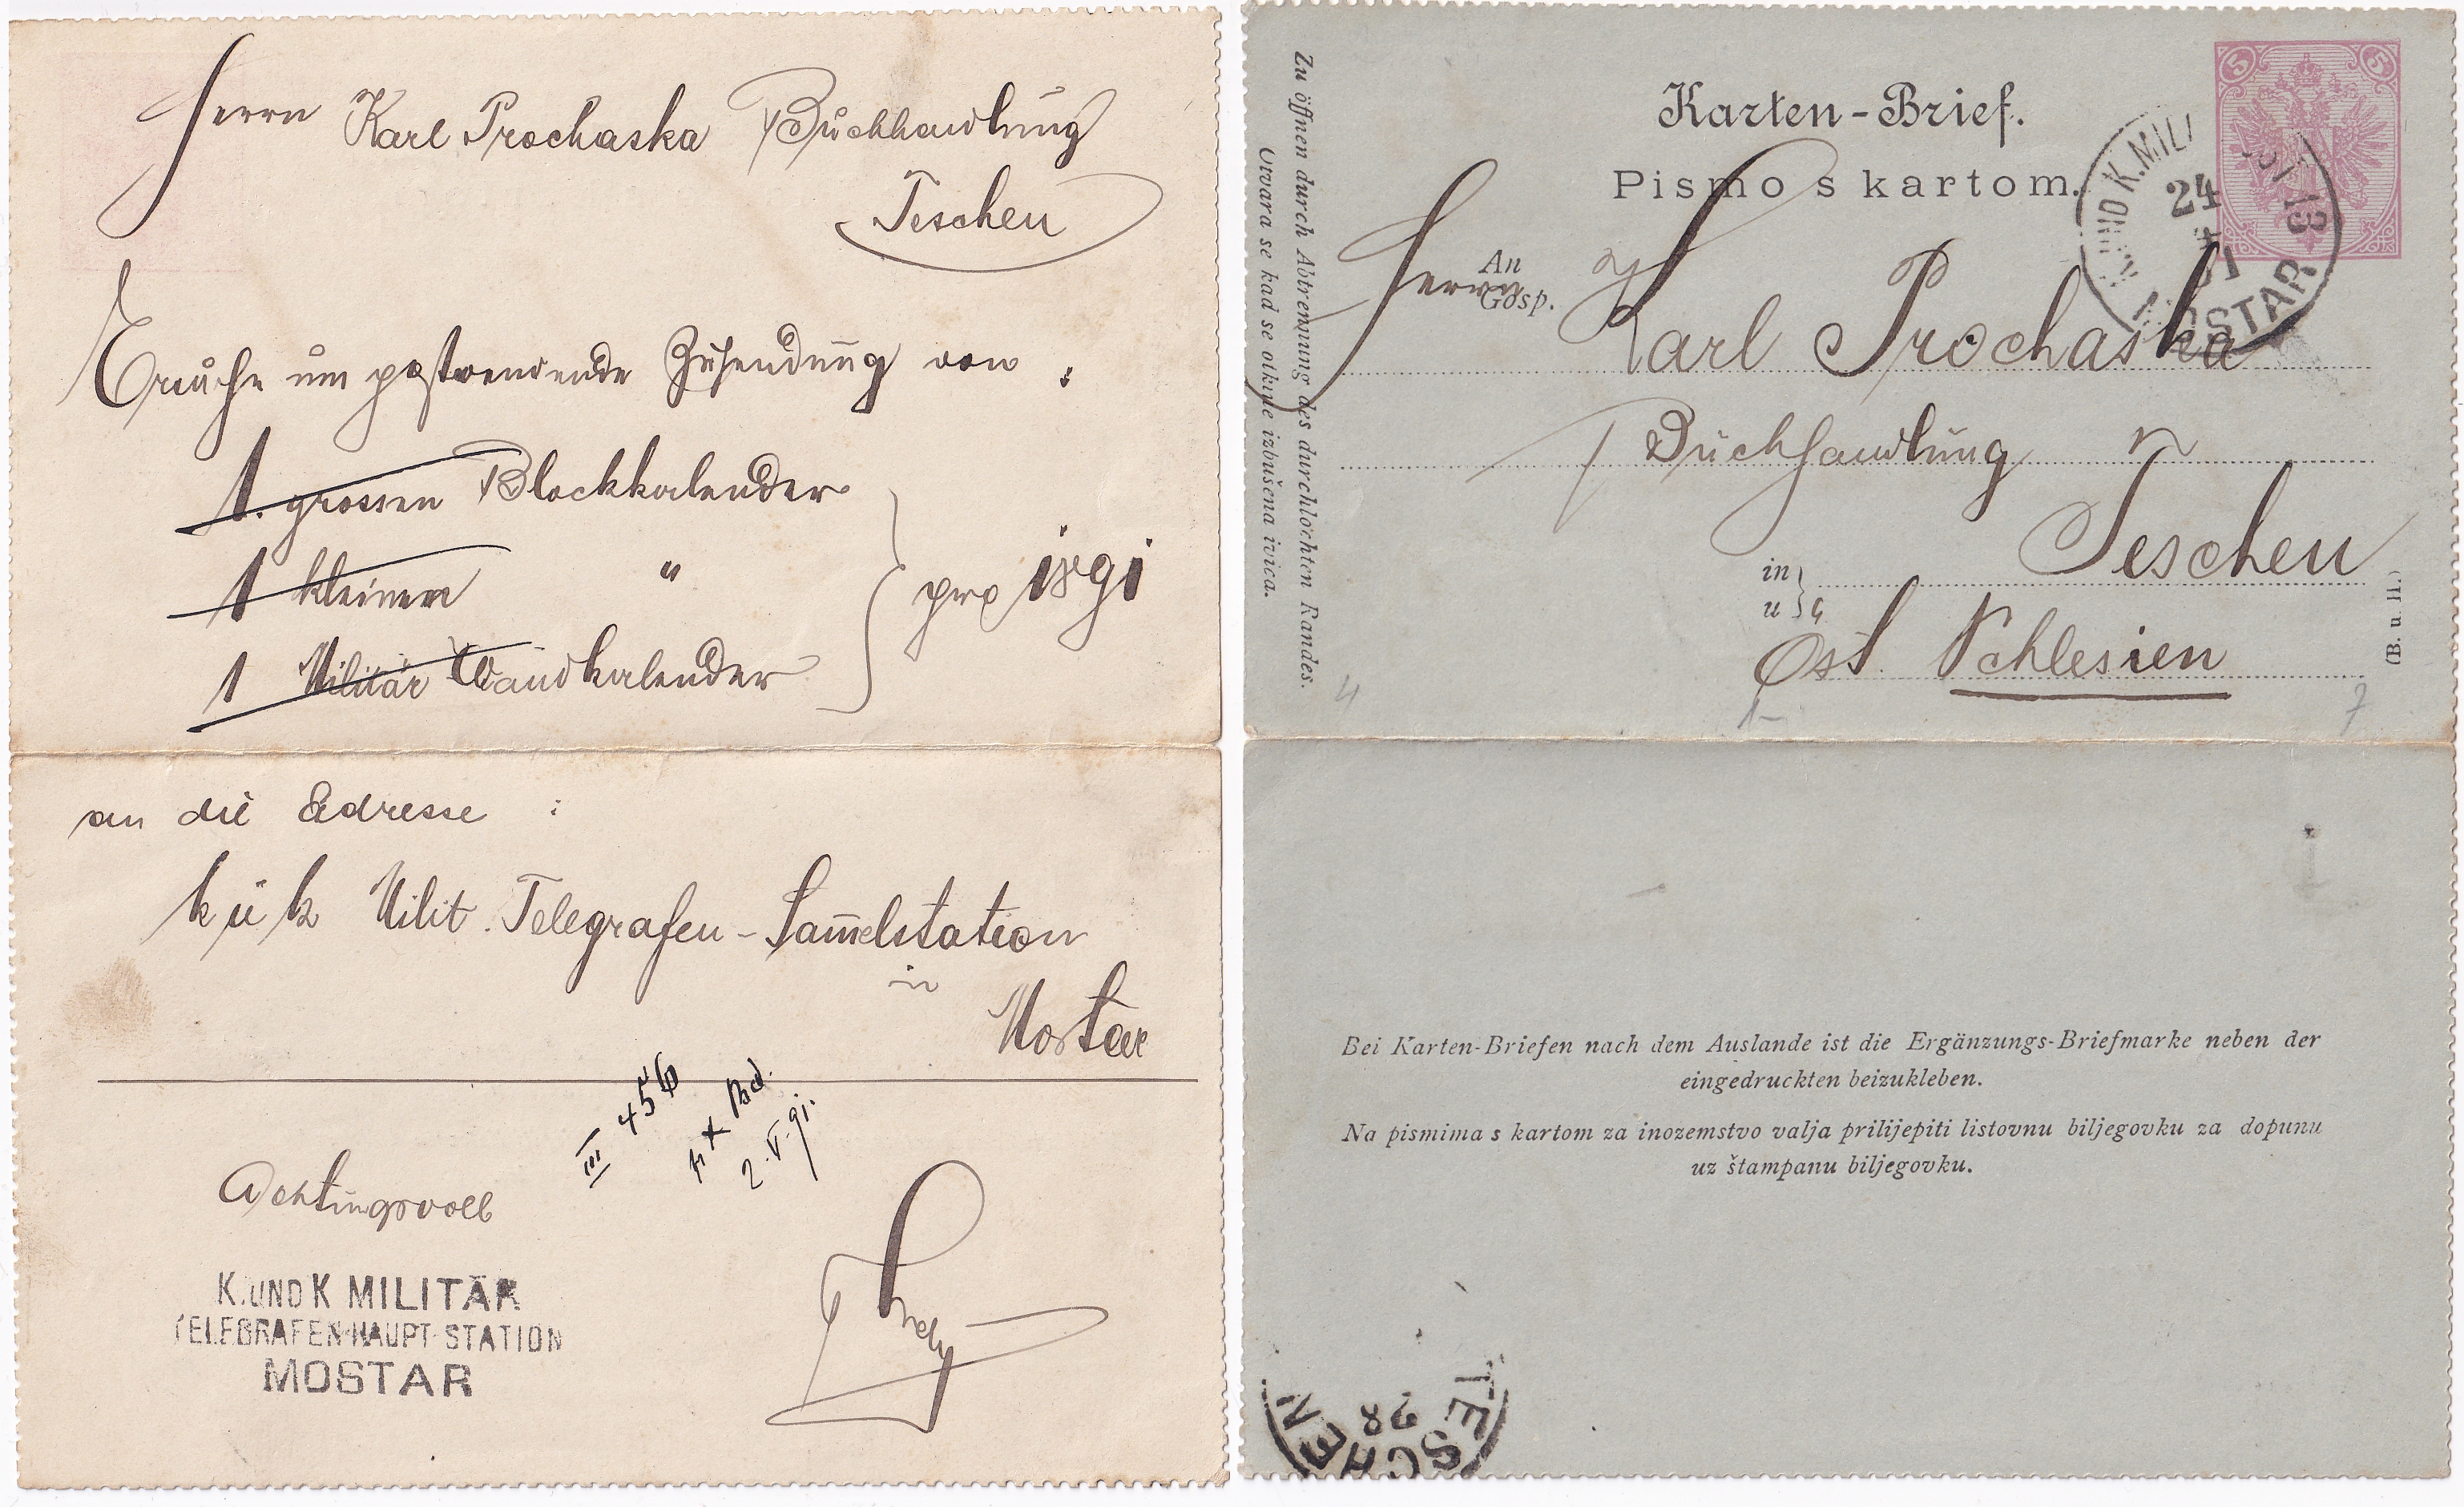 Herrn Karl Prochaska Buchhandlung
Teschen
Ersuche um postwendende Zusendung von :
1. grossen Blockkalender
1 kleinen "
1 Militär Wandkalender
pro 1891
an die Adresse :
k u k Milit. Telegrafen-Sam̅elstation
in
Mostar
III 456
2.V.91.
Achtungsvoll
K. UND K MILITÄR
TELEGRAFEN-HAUPT-STATION
MOSTAR
Karten-Brief.
Pismo s kartom.
5 5
K. UND K. MILI
24
91
MOSTAR
Zu öffnen durch Abtrennung des durchlochten Randes.
Otvara se kad se otkine izbušena ivica.
An
Gosp.
Herrn Karl Prochaska
Buchhandlung
in
u
Teschen
Öst. Schlesien
(B. u. H.)
4
7
Bei Karten-Briefen nach dem Auslande ist die Ergänzungs-Briefmarke neben der
eingedruckten beizukleben.
Na pismima s kartom za inozemstvo valja prilijepiti listovnu biljegovku za dopunu
uz štampanu biljegovku.
TESCHEN
28